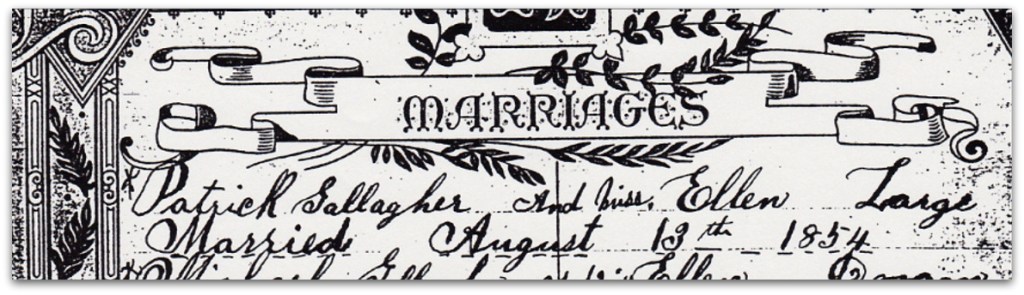 MARRIAGES
Patrick Gallagher And Miss. Ellen Large
Married August 13th 1854
Ellen